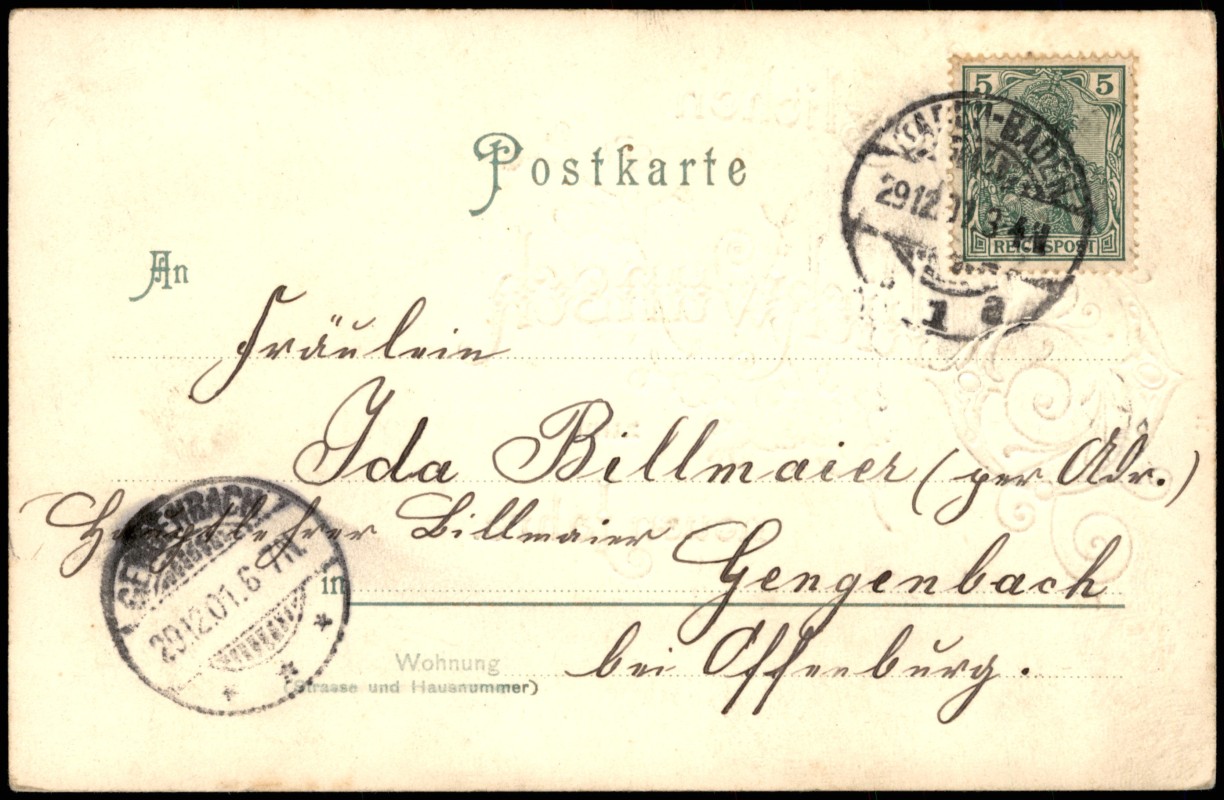 Postkarte
5 5
REICHSPOST
BADEN-BADEN
29 12. 01. 3-4 N
1 a
An
Fräulein
Ida Billmaier (per Adr.)
Hauptlehrer Billmaier
in Gengenbach
bei Offenburg.
GENGENBACH
29.12.01. 6-7 N.
Wohnung
(Strasse und Hausnummer)